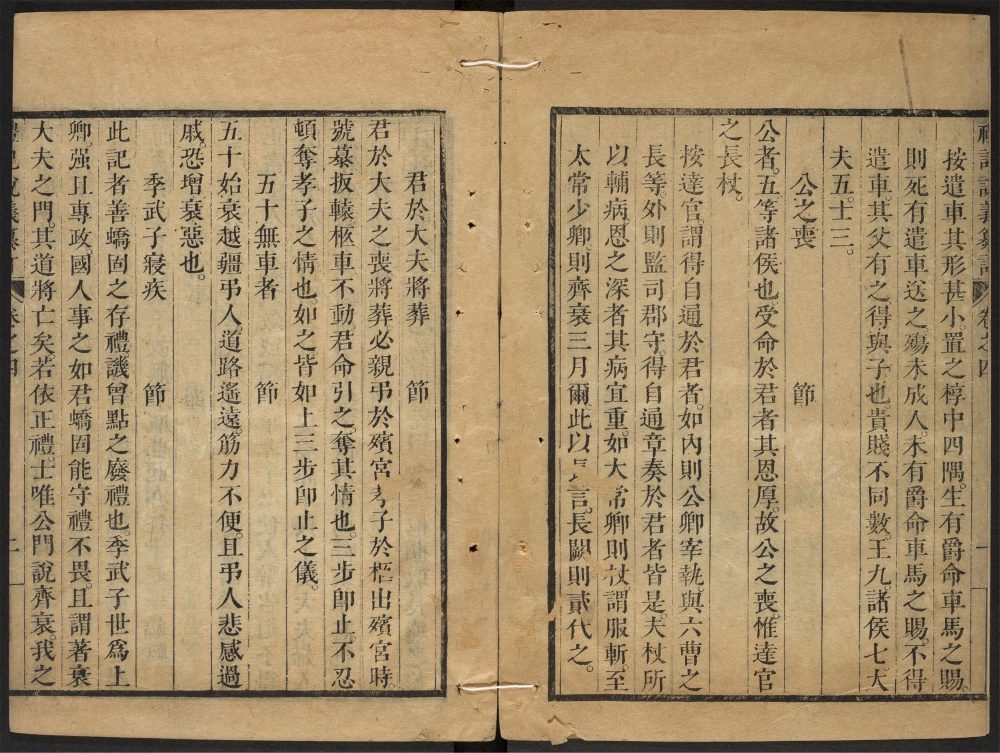 禮記說義纂訂 卷之四 一
按遣車其形甚小。置之椁中四隅。生有爵命車馬之賜。
則死有遣車送之。殤未成人。未有爵命車馬之賜。不得
遣車。其父有之。得與子也。貴賤不同數。王九。諸侯七。大
夫五。士三。
公之喪 節
公者。五等諸侯也。受命於君者其恩厚。故公之喪。惟達官
之長杖。
按達官。謂得自通於君者。如內則公卿宰執。與六曹之
長等外則監司郡守。得自通章奏於君者皆是。夫杖所
以輔病。恩之深者其病宜重。如大常卿則杖。謂服斬。至
太常少卿。則齊衰三月爾此以言。長闕則貳代之。
君於大夫將葬 節
君於大夫之喪將葬。必親弔於殯宮。孝子於柩出殯宮時。
號慕扳轅。柩車不動。君命引之。奪其情也。三步卽止。不忍
頓奪孝子之情也。如之皆如上三步卽止之儀。
五十無車者 節
五十始衰。越疆弔人。道路遙遠。筋力不便。且弔人悲感過
戚。恐增衰惡也。
季武子寢疾 節
此記者善蟜固之存禮。譏曾點之廢禮也。季武子世爲上
卿。强且專政。國人事之如君。蟜固能守禮不畏。且謂著衰
大夫之門。其道將亡矣。若依正禮。士唯公門說齊衰。我之
禮記說義纂訂 卷之四 二